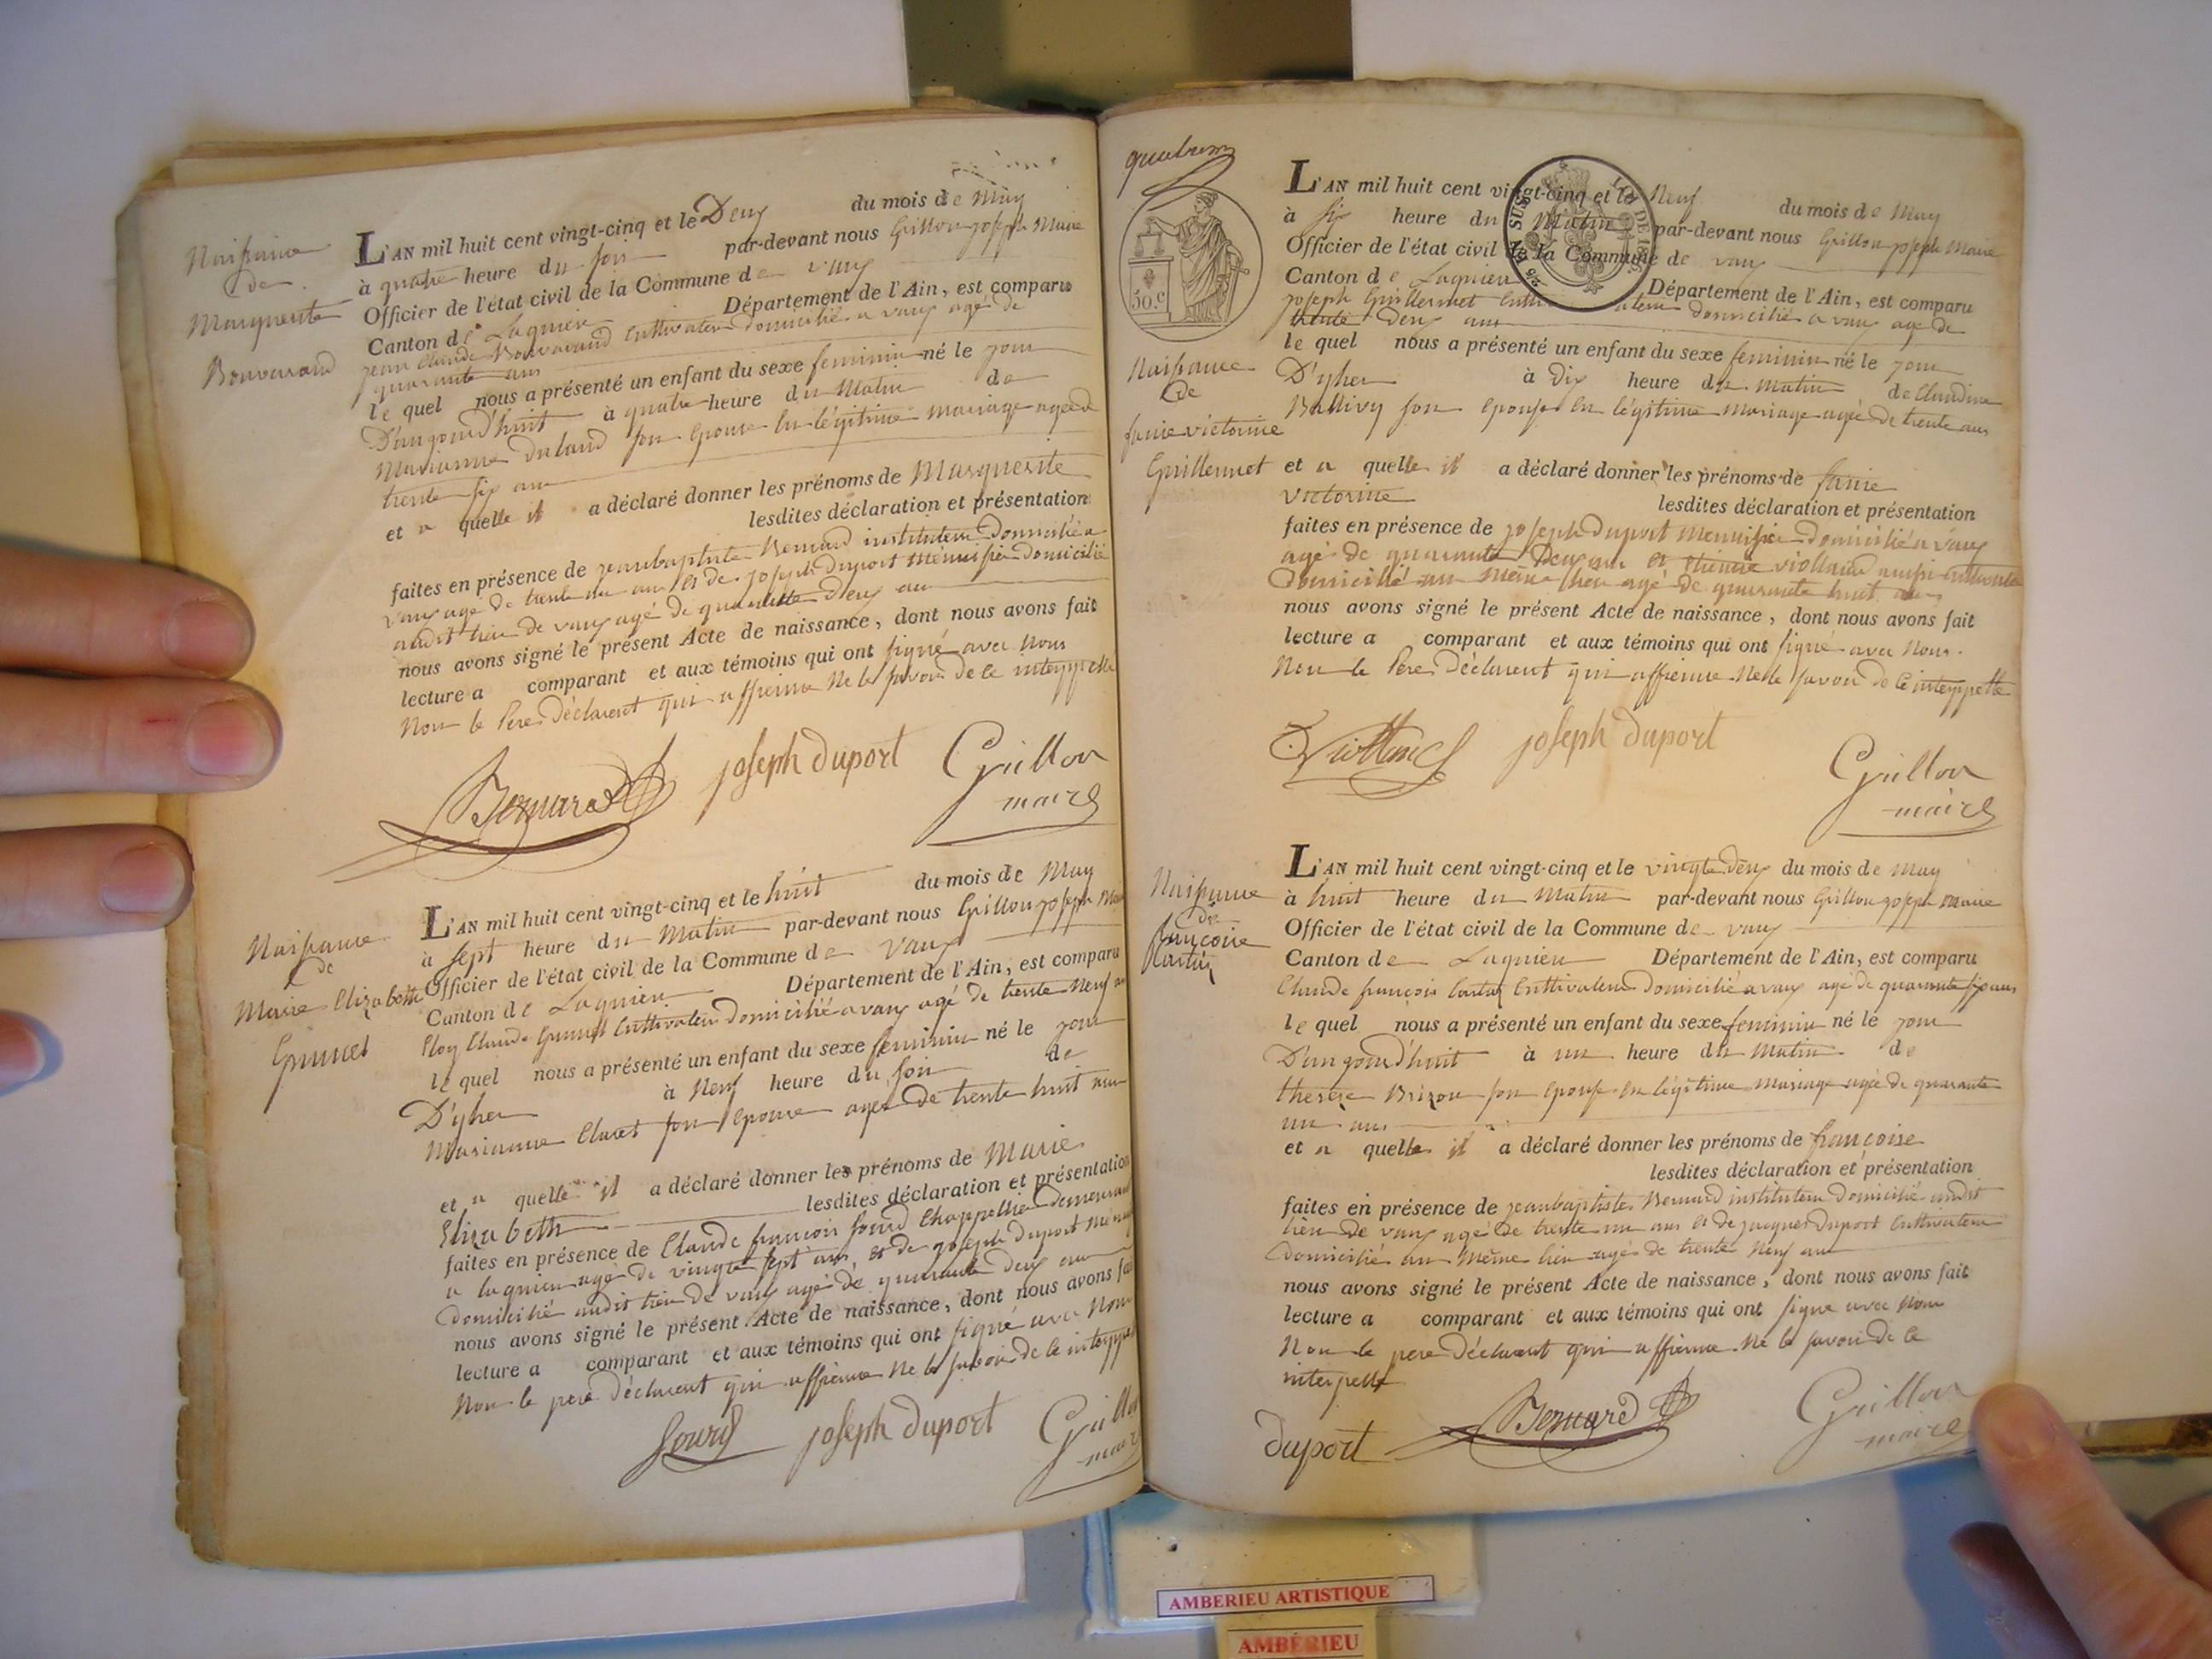 Naissance
de
Marguerite
Bouvarand
L'AN mil huit cent vingt-cinq et le Deux du mois de May
à quatre heure du soir par-devant nous Grillon joseph Maire
Officier de l'état civil de la Commune de vaux
Canton de Lagnieu Département de l'Ain, est comparu
jean Claude Cultivateur domicilié a vaux agé de
quarante ans
le quel nous a présenté un enfant du sexe feminin né le jour
D'aujourd'huit à quatre heure du Matin de
Marianne son Epouse En légitime mariage agée de
trente six ans
et a quelle il a déclaré donner les prénoms de Marguerite
lesdites déclaration et présentation
faites en présence de jeanbaptiste Bernard instituteur Domicilié a
vaux agé de trente un ans et de joseph Duport Menuisier domicilié
audit lieu de vaux agé de quarante deux ans
nous avons signé le présent Acte de naissance, dont nous avons fait
lecture a comparant et aux témoins qui ont signé avec Nous
Non le Pere Déclarent qui affirme Ne le savoir de ce interppelle
Bernard joseph duport Grillon
maire
Naissance
de
Marie Elizabeth
Grumet
L'AN mil huit cent vingt-cinq et le huit du mois de May
à sept heure du Matin par-devant nous Grillon joseph
Officier de l'état civil de la Commune de vaux
Canton de Lagnieu Département de l'Ain, est comparu
Eloy Claude Grumet Cultivateur domicilié a vaux agé de trente Neuf
le quel nous a présenté un enfant du sexe feminin né le jour
D'yher à Neuf heure du soir de
Marianne Claret son Epouse agée de trente huit ans
et a quelle il a déclaré donner les prénoms de Marie
Elizabeth lesdites déclaration et présentation
faites en présence de Claude françois sourd Chappellier demeurant
a lagnieu agé de vingte sept ans, et de joseph Duport
domicilié audit lieu de vaux agé de quarante deux ans
nous avons signé le présent Acte de naissance, dont nous avons
lecture a comparant et aux témoins qui ont signé avec Nous
Non le pere Déclarent qui affirme Ne le savoir de ce
sourd joseph duport Grillon
maire
50.c
Naissance
de
fanie victorine
Guillermet
L'AN mil huit cent vingt-cinq et le Neuf du mois de May
à six heure du Matin par-devant nous Grillon joseph Maire
Officier de l'état civil de la Commune de vaux
Canton de Lagnieu Département de l'Ain, est comparu
joseph Guillermet domicilié a vaux agé de
trente deux ans
le quel nous a présenté un enfant du sexe feminin né le jour
D'yher à Dix heure du matin de Claudine
Ballivy son epouse En légitime Mariage agée de trente ans
et a quelle il a déclaré donner les prénoms de fanie
victorine lesdites déclaration et présentation
faites en présence de joseph Duport Menuisier domicilié a vaux
agé de quarante Deux ans et
Domicilié au même lieu agé de quarante huit ans
nous avons signé le présent Acte de naissance, dont nous avons fait
lecture a comparant et aux témoins qui ont signé avec Nous.
Non le Pere Déclarent qui affirme Ne le savoir de ce interppelle
joseph duport
Grillon
maire
Naissance
de
françoise
L'AN mil huit cent vingt-cinq et le vingte deux du mois de May
à huit heure du Matin par-devant nous Grillon joseph maire
Officier de l'état civil de la Commune de vaux
Canton de Lagnieu Département de l'Ain, est comparu
Claude françois Cultivateur Domicilié a vaux agé de quarante six ans
le quel nous a présenté un enfant du sexe feminin né le jour
D'aujourd'huit à un heure du Matin de
therèze Brizou son Epouse En légitime Mariage agée de quarante
un ans
et a quelle il a déclaré donner les prénoms de françoise
lesdites déclaration et présentation
faites en présence de jeanbaptiste Bernard instituteur domicilié audit
lieu de vaux agé de trente un ans et de jacques Duport Cultivateur
Domicilié au même lieu agé de trente Neuf ans
nous avons signé le présent Acte de naissance, dont nous avons fait
lecture a comparant et aux témoins qui ont signé avec Nous
Non le pere Déclarent qui affirme Ne le savoir de ce
interpelle
duport Bernard Grillon
maire
AMBERIEU ARTISTIQUE
AMBÉRIEU